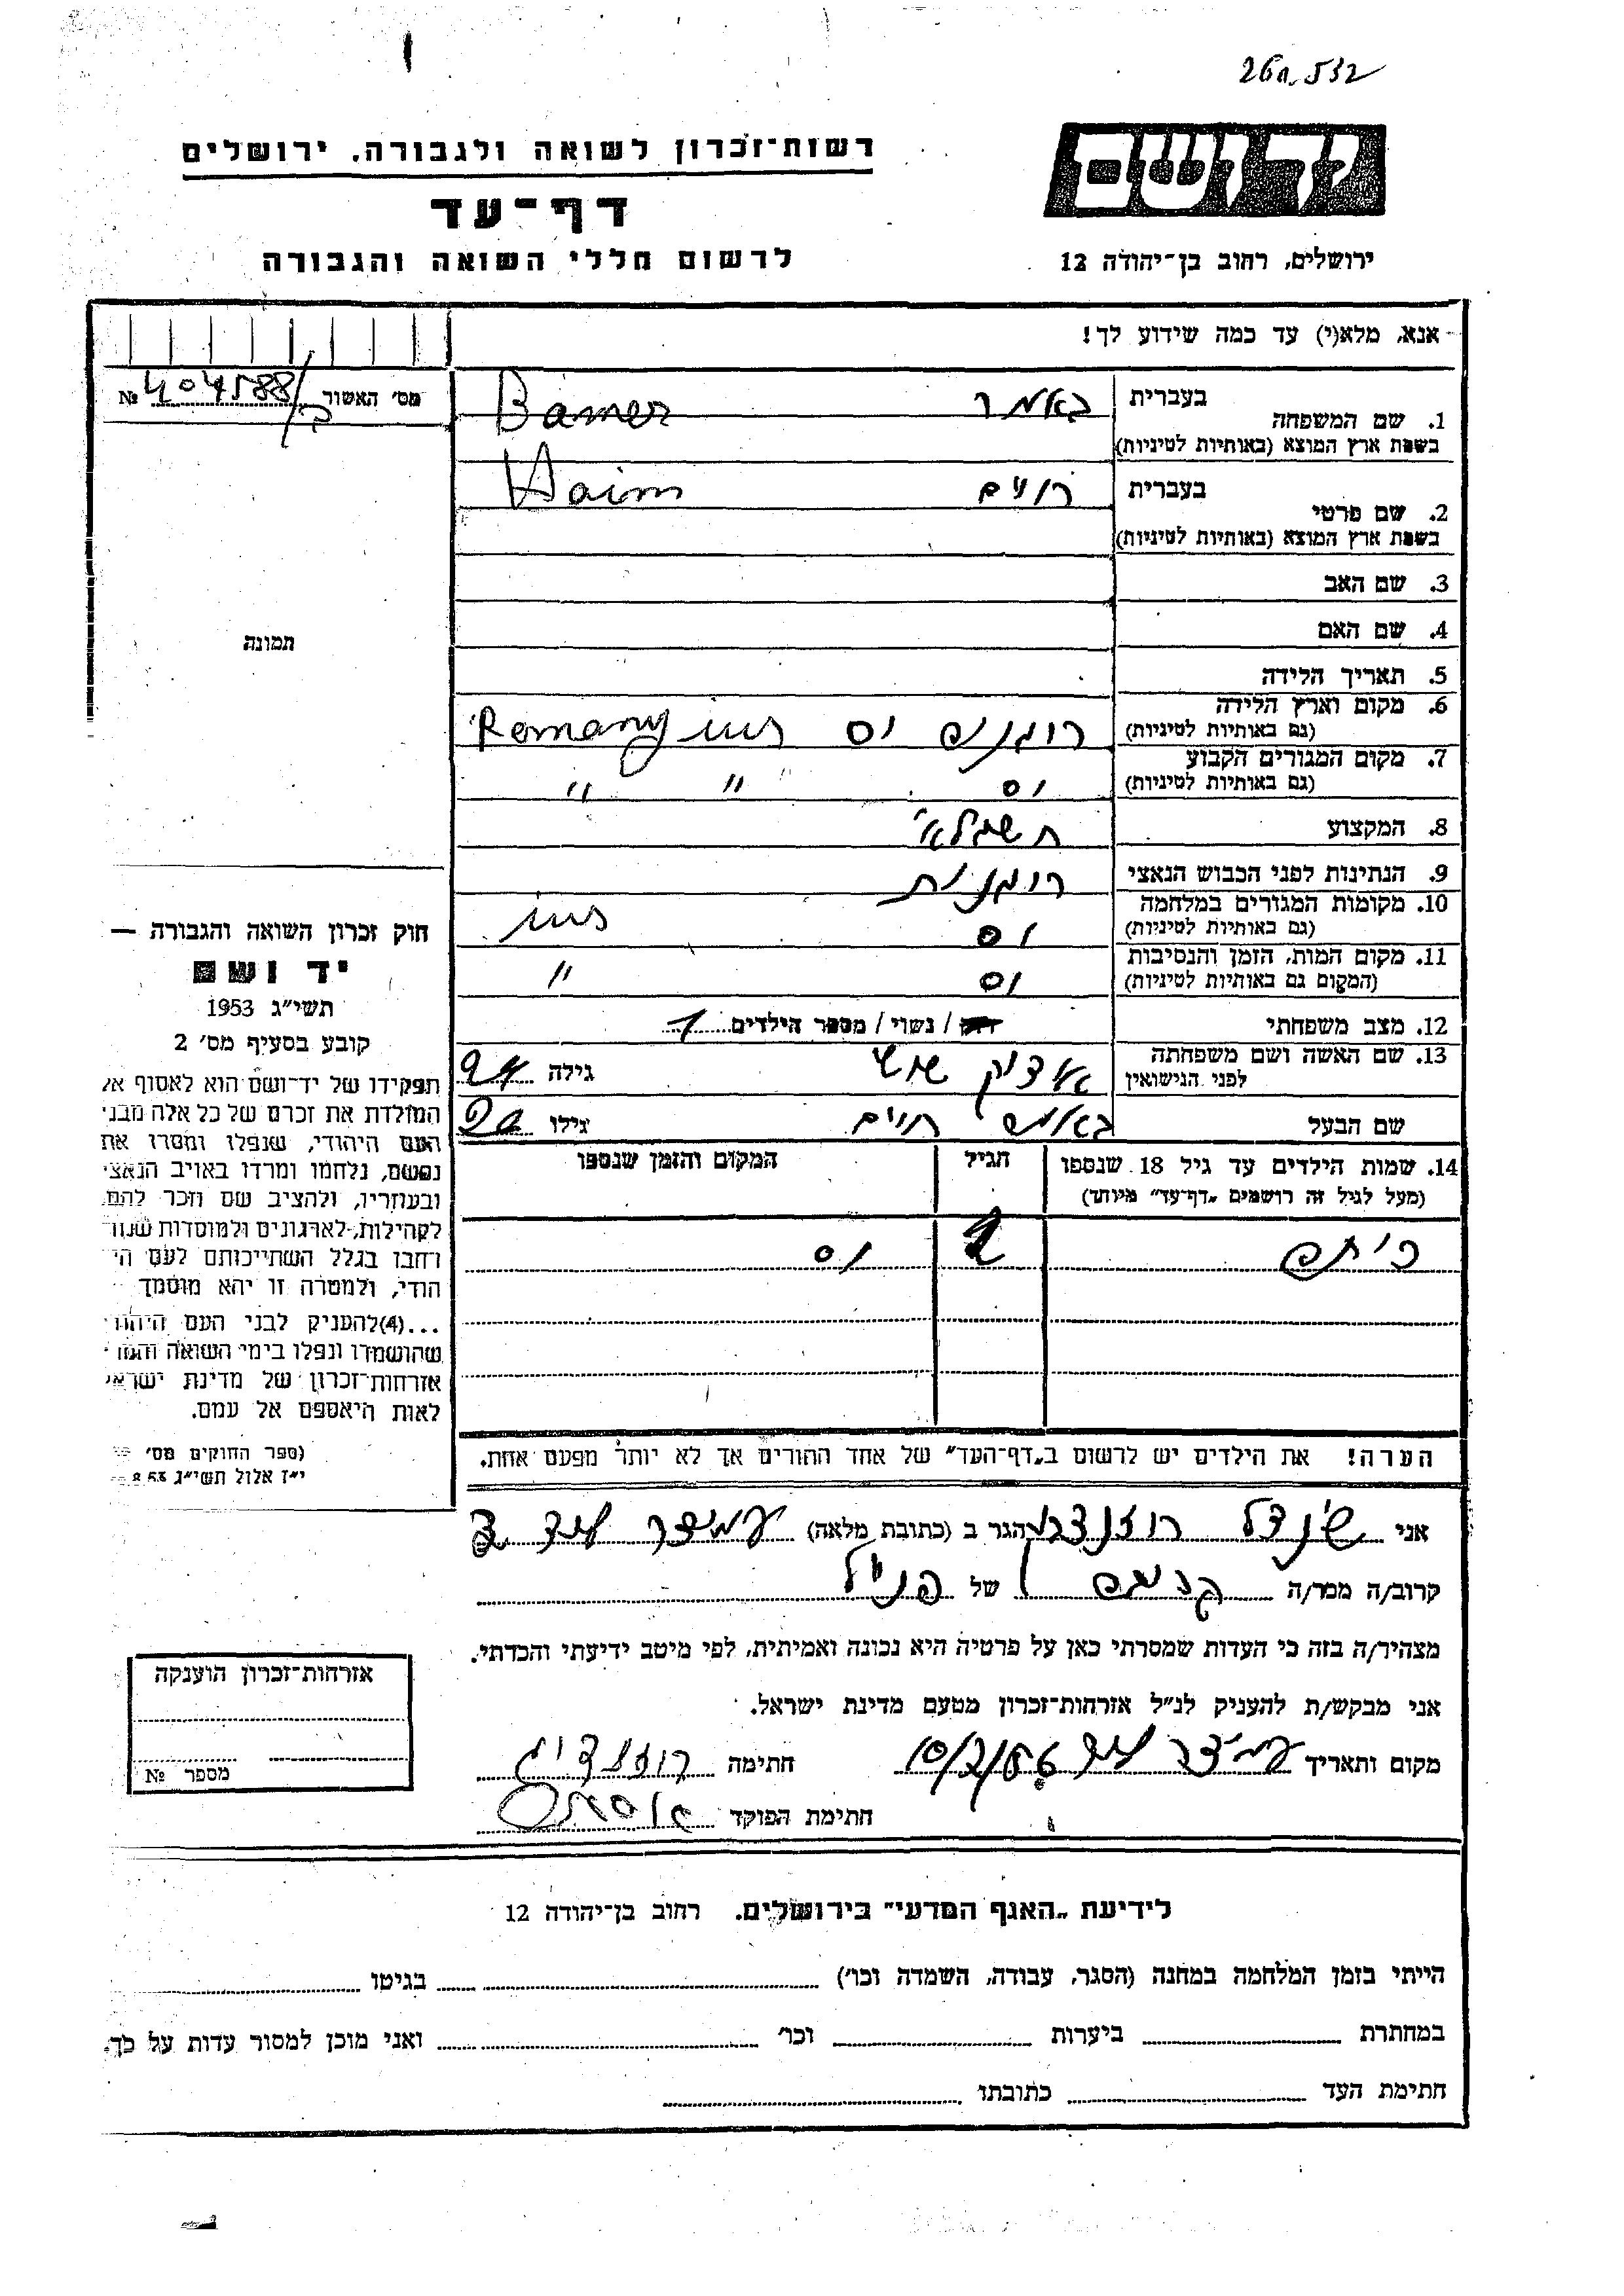 26a.532
רשות־זכרון לשואה ולגבורה, ירושלים
ידושם
דף־עד
לרשום חללי השואה והגבורה
ירושלים, רחוב בן־יהודה 12
אנא, מלא(י) עד כמה שידוע לך!
מס׳ האשור 404588/ב №
1. שם המשפחה
בעברית באמר Bamer
בשפת ארץ המוצא (באותיות לטיניות)
2. שם פרטי
בעברית חיים Haim
בשפת ארץ המוצא (באותיות לטיניות)
3. שם האב
4. שם האם
תמונה
5. תאריך הלידה
6. מקום וארץ הלידה
(גם באותיות לטיניות) יס
7. מקום המגורים הקבוע
(גם באותיות לטיניות) יס " "
8. המקצוע חשמלאי
9. הנתינות לפני הכבוש הנאצי רומנית
10. מקומות המגורים במלחמה
(גם באותיות לטיניות) יס
11. מקום המות, הזמן והנסיבות
(המקום גם באותיות לטיניות) יס "
12. מצב משפחתי רווק / נשוי / מספר הילדים 1
13. שם האשה ושם משפחתה
לפני הנישואין גילה 24
שם הבעל באמר חיים גילו
14. שמות הילדים עד גיל 18 שנספו הגיל המקום והזמן שנספו
(מעל לגיל זה רושמים „דף־עד” מיוחד)
2 יס
הערה! את הילדים יש לרשום ב„דף־העד” של אחד ההורים אך לא יותר מפעם אחת.
חוק זכרון השואה והגבורה —
יד ושם
תשי״ג 1953
קובע בסעיף מס׳ 2
תפקידו של יד־ושם הוא לאסוף אל
המולדת את זכרם של כל אלה מבני
העם היהודי, שנפלו ומסרו את
נפשם, נלחמו ומרדו באויב הנאצי
ובעוזריו, ולהציב שם וזכר להם,
לקהילות, לארגונים ולמוסדות שנח־
רחבו בגלל השתייכותם לעם הי־
הודי, ולמטרה זו יהא מוסמך
...(4)להעניק לבני העם היהודי
שהושמדו ונפלו בימי השואה
אזרחות־זכרון של מדינת ישראל
לאות היאספם אל עמם.
(ספר החוקים מס׳
י״ז אלול תשי״ג
אני שינדל הגר ב (כתובת מלאה)
קרוב/ה מכר/ה של
מצהיר/ה בזה כי העדות שמסרתי כאן על פרטיה היא נכונה ואמיתית, לפי מיטב ידיעתי והכרתי.
אני מבקש/ת להעניק לנ״ל אזרחות־זכרון מטעם מדינת ישראל.
מקום ותאריך חתימה
חתימת הפוקד
אזרחות־זכרון הוענקה
מספר №
לידיעת „האגף המדעי” בירושלים. רחוב בן־יהודה 12
הייתי בזמן המלחמה במחנה (הסגר, עבודה, השמדה וכו׳) בגיטו
במחתרת ביערות וכו׳ ואני מוכן למסור עדות על כך.
חתימת העד כתובתו